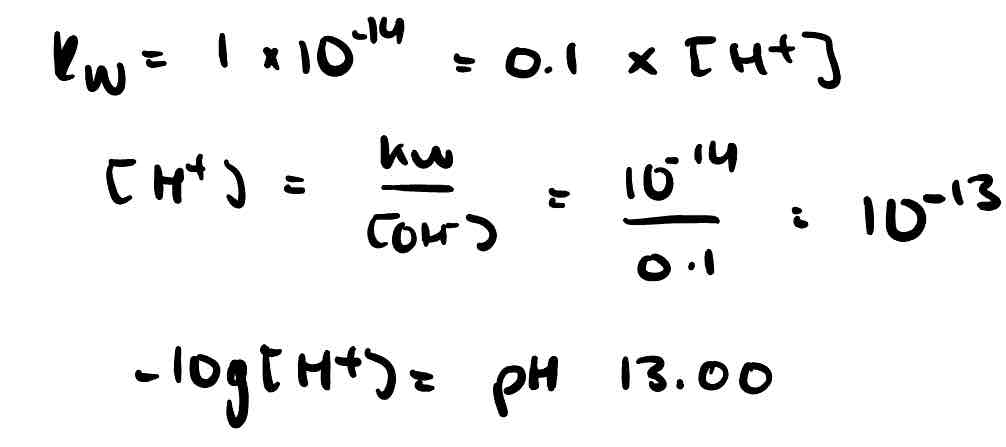 Kw = 1 × 10⁻¹⁴ = 0.1 × [H⁺]
[H⁺] = kw/[OH⁻] = 10⁻¹⁴/0.1 = 10⁻¹³
-log[H⁺] = pH 13.00